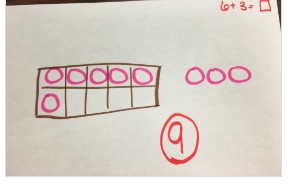 6+3=□
9